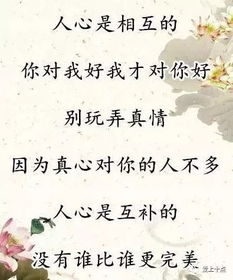 人心是相互的
你对我好我才对你好
别玩弄真情
因为真心对你的人不多
人心是互补的
没有谁比谁更完美
爱上十点